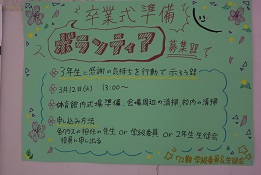 卒業式準備
ボランティア
募集!!
3年生に感謝の気持ちを行動で示そう!!
3月12日(火) 13:00〜
体育館内式場準備、会場周辺の清掃、校内の清掃
申し込み方法
各クラスの担任の先生 or 学級委員 or 2年生生徒会
役員に申し出る
72期 学級委員&生徒会